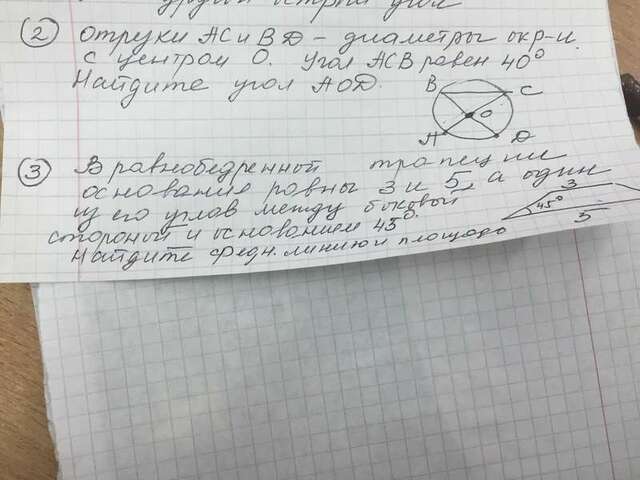 другой острый угол
2 Отруки AC и BD - диаметры окр-и
с центром O. Угол ACB равен 40°
Найдите угол AOD.
B C
O
A D
3 В равнобедренной трапеции
основание равны 3 и 5, а один
из его углов между боковой
стороный и основанием 45°.
Найдите средн. линию и площадь
3
45°
5